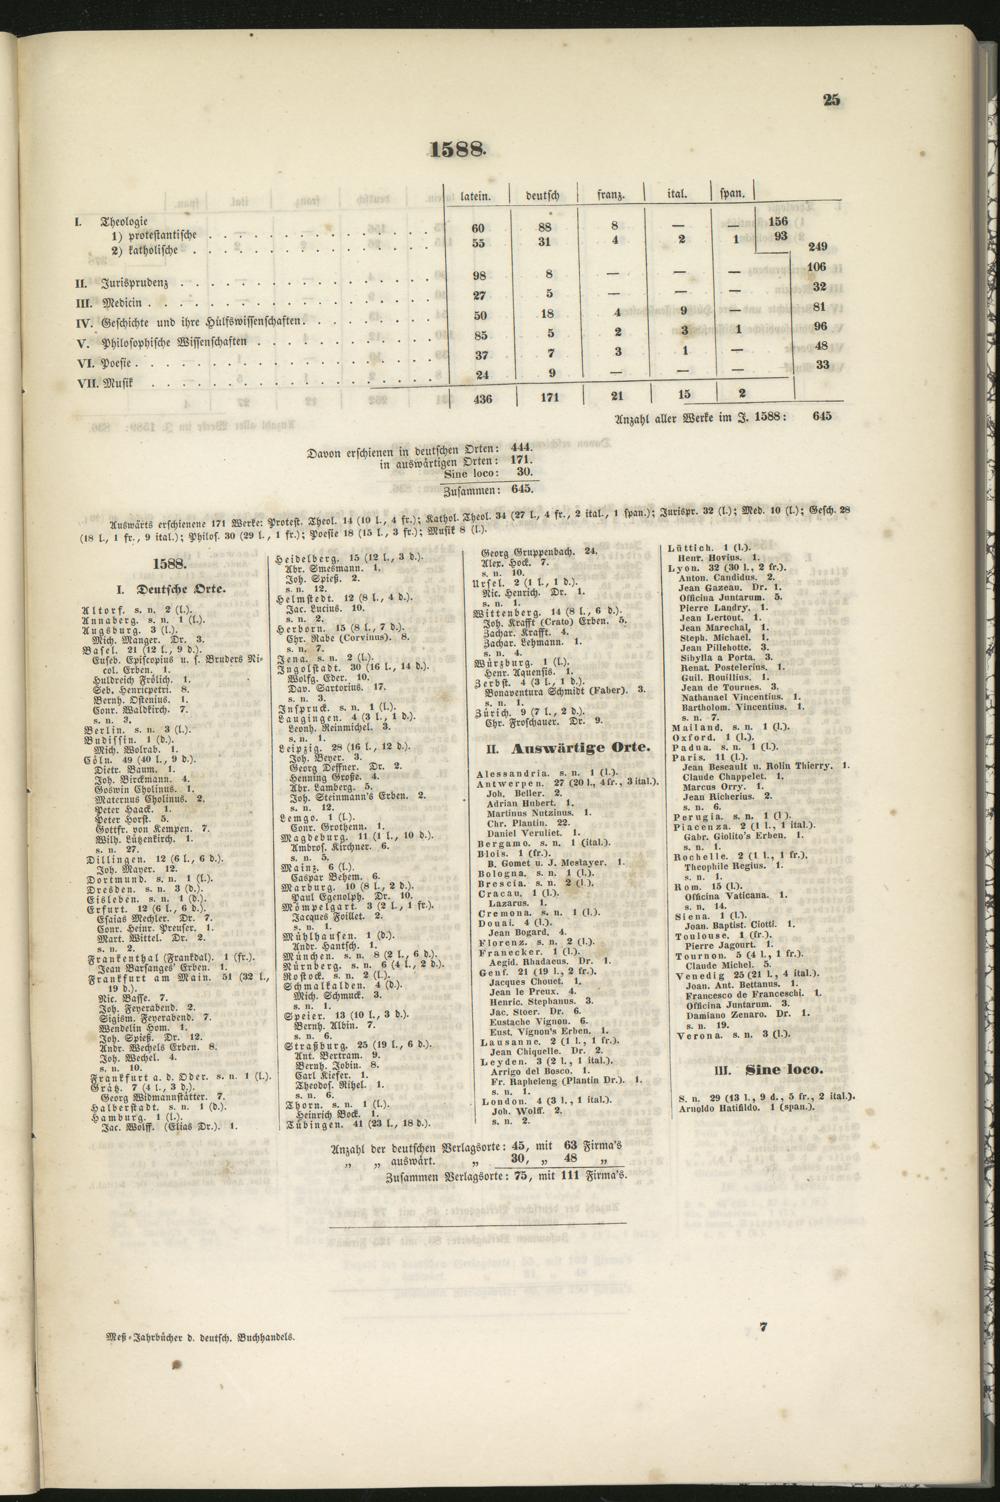 25
1588.
latein. deutsch franz. ital. span.
I. Theologie
1) protestantische 60 88 8 — — 156
2) katholische 55 31 4 2 1 93
249
II. Jurisprudenz 98 8 — — — 106
III. Medicin 27 5 — — — 32
IV. Geschichte und ihre Hülfswissenschaften. 50 18 4 9 — 81
V. Philosophische Wissenschaften 85 5 2 3 1 96
VI. Poesie 37 7 3 1 — 48
VII. Musik 24 9 — — — 33
436 171 21 15 2
Anzahl aller Werke im J. 1588: 645
Davon erschienen in deutschen Orten: 444.
in auswärtigen Orten: 171.
Sine loco: 30.
Zusammen: 645.
Auswärts erschienene 171 Werke: Protest. Theol. 14 (10 l., 4 fr.); Kathol. Theol. 34 (27 l., 4 fr., 2 ital., 1 span.); Jurispr. 32 (l.); Med. 10 (l.); Gesch. 28
(18 l., 1 fr., 9 ital.); Philos. 30 (29 l., 1 fr.); Poesie 18 (15 l., 3 fr.); Musik 8 (l.).
1588.
I. Deutsche Orte.
Altorf. s. n. 2 (l.).
Annaberg. s. n. 1 (l.).
Augsburg. 3 (l.).
Mich. Manger. Dr. 3.
Basel. 21 (12 l., 9 d.).
Euseb. Episcopius u. s. Bruders Ni-
col. Erben. 1.
Huldreich Frölich. 1.
Seb. Henricpetri. 8.
Bernh. Ostenius. 1.
Conr. Waldkirch. 7.
s. n. 3.
Berlin. s. n. 3 (l.).
Budissin. 1 (d.).
Mich. Wolrab. 1.
Cöln. 49 (40 l., 9 d.).
Dietr. Baum. 1.
Joh. Birckmann. 4.
Goswin Cholinus. 1.
Maternus Cholinus. 2.
Peter Haack. 1.
Peter Horst. 5.
Gottfr. von Kempen. 7.
Wilh. Lützenkirch. 1.
s. n. 27.
Dillingen. 12 (6 l., 6 d.).
Joh. Mayer. 12.
Dortmund. s. n. 1 (l.).
Dresden. s. n. 3 (d.).
Eisleben. s. n. 1 (d.).
Erfurt. 12 (6 l., 6 d.).
Esaias Mechler. Dr. 7.
Conr. Heinr. Preuser. 1.
Mart. Wittel. Dr. 2.
s. n. 2.
Frankenthal (Frankdal). 1 (fr.).
Jean Barsanges' Erben. 1.
Frankfurt am Main. 51 (32 l.,
19 d.).
Nic. Basse. 7.
Joh. Feyerabend. 2.
Sigism. Feyerabend. 7.
Wendelin Hom. 1.
Joh. Spieß. Dr. 12.
Andr. Wechels Erben. 8.
Joh. Wechel. 4.
s. n. 10.
Frankfurt a. d. Oder. s. n. 1 (l.).
Grätz. 7 (4 l., 3 d.).
Georg Widmannstätter. 7.
Halberstadt. s. n. 1 (d.).
Hamburg. 1 (l.).
Jac. Wolff. (Elias Dr.). 1.
Heidelberg. 15 (12 l., 3 d.).
Abr. Smesmann. 1.
Joh. Spieß. 2.
s. n. 12.
Helmstedt. 12 (8 l., 4 d.).
Jac. Lucius. 10.
s. n. 2.
Herborn. 15 (8 l., 7 d.).
Chr. Rabe (Corvinus). 8.
s. n. 7.
Jena. s. n. 2 (l.).
Ingolstadt. 30 (16 l., 14 d.).
Wolfg. Eder. 10.
Dav. Sartorius. 17.
s. n. 3.
Inspruck. s. n. 1 (l.).
Laugingen. 4 (3 l., 1 d.).
Leonh. Reinmichel. 3.
s. n. 1.
Leipzig. 28 (16 l., 12 d.).
Joh. Beyer. 3.
Georg Deffner. Dr. 2.
Henning Große. 4.
Abr. Lamberg. 5.
Joh. Steinmann's Erben. 2.
s. n. 12.
Lemgo. 1 (l.).
Conr. Grothenn. 1.
Magdeburg. 11 (1 l., 10 d.).
Ambros. Kirchner. 6.
s. n. 5.
Mainz. 6 (l.).
Caspar Behem. 6.
Marburg. 10 (8 l., 2 d.).
Paul Egenolph. Dr. 10.
Mömpelgart. 3 (2 l., 1 fr.).
Jacques Foillet. 2.
s. n. 1.
Mühlhausen. 1 (d.).
Andr. Hantsch. 1.
München. s. n. 8 (2 l., 6 d.).
Nürnberg. s. n. 6 (4 l., 2 d.).
Rostock. s. n. 2 (l.).
Schmalkalden. 4 (d.).
Mich. Schmuck. 3.
s. n. 1.
Speier. 13 (10 l., 3 d.).
Bernh. Albin. 7.
s. n. 6.
Straßburg. 25 (19 l., 6 d.).
Ant. Bertram. 9.
Bernh. Jobin. 8.
Carl Kiefer. 1.
Theodos. Rihel. 1.
s. n. 6.
Thorn. s. n. 1 (l.).
Heinrich Bock. 1.
Tübingen. 41 (23 l., 18 d.).
Georg Gruppenbach. 24.
Alex. Hock. 7.
s. n. 10.
Ursel. 2 (1 l., 1 d.).
Nic. Henrich. Dr. 1.
s. n. 1.
Wittenberg. 14 (8 l., 6 d.).
Joh. Krafft (Crato) Erben. 5.
Zachar. Krafft. 4.
Zachar. Lehmann. 1.
s. n. 4.
Würzburg. 1 (l.).
Henr. Aquensis. 1.
Zerbst. 4 (3 l., 1 d.).
Bonaventura Schmidt (Faber). 3.
s. n. 1.
Zürich. 9 (7 l., 2 d.).
Chr. Froschauer. Dr. 9.
II. Auswärtige Orte.
Alessandria. s. n. 1 (l.).
Antwerpen. 27 (20 l., 4 fr., 3 ital.).
Joh. Beller. 2.
Adrian Hubert. 1.
Martinus Nutzinus. 1.
Chr. Plantin. 22.
Daniel Veruliet. 1.
Bergamo. s. n. 1 (ital.).
Blois. 1 (fr.).
B. Gomet u. J. Mestayer. 1.
Bologna. s. n. 1 (l.).
Brescia. s. n. 2 (l.).
Cracau. 1 (l.).
Lazarus. 1.
Cremona. s. n. 1 (l.).
Douai. 4 (l.).
Jean Bogard. 4.
Florenz. s. n. 2 (l.).
Franecker. 1 (l.).
Aegid. Rhadaeus. Dr. 1.
Genf. 21 (19 l., 2 fr.).
Jacques Chouet. 1.
Jean le Preux. 4.
Henric. Stephanus. 3.
Jac. Stoer. Dr. 6.
Eustache Vignon. 6.
Eust. Vignon's Erben. 1.
Lausanne. 2 (1 l., 1 fr.).
Jean Chiquelle. Dr. 2.
Leyden. 3 (2 l., 1 ital.).
Arrigo del Bosco. 1.
Fr. Rapheleng (Plantin Dr.). 1.
s. n. 1.
London. 4 (3 l., 1 ital.).
Joh. Wolff. 2.
s. n. 2.
Lüttich. 1 (l.).
Henr. Hovius. 1.
Lyon. 32 (30 l., 2 fr.).
Anton. Candidus. 2.
Jean Gazeau. Dr. 1.
Officina Juntarum. 5.
Pierre Landry. 1.
Jean Lertout. 1.
Jean Marechal. 1.
Steph. Michael. 1.
Jean Pillehotte. 3.
Sibylla a Porta. 3.
Renat. Postelerius. 1.
Guil. Rouillius. 1.
Jean de Tournes. 3.
Nathanael Vincentius. 1.
Bartholom. Vincentius. 1.
s. n. 7.
Mailand. s. n. 1 (l.).
Oxford. 1 (l.).
Padua. s. n. 1 (l.).
Paris. 11 (l.).
Jean Beseault u. Rolin Thierry. 1.
Claude Chappelet. 1.
Marcus Orry. 1.
Jean Richerius. 2.
s. n. 6.
Perugia. s. n. 1 (l ).
Piacenza. 2 (1 l., 1 ital.).
Gabr. Giolito's Erben. 1.
s. n. 1.
Rochelle. 2 (1 l., 1 fr.).
Theophile Regius. 1.
s. n. 1.
Rom. 15 (l.).
Officina Vaticana. 1.
s. n. 14.
Siena. 1 (l.).
Joan. Baptist. Ciotti. 1.
Toulouse. 1 (fr.).
Pierre Jagourt. 1.
Tournon. 5 (4 l., 1 fr.).
Claude Michel. 5.
Venedig 25 (21 l., 4 ital.).
Joan. Ant. Bettanus. 1.
Francesco de Franceschi. 1.
Officina Juntarum. 3.
Damiano Zenaro. Dr. 1.
s. n. 19.
Verona. s. n. 3 (l.).
III. Sine loco.
S. n. 29 (13 l., 9 d., 5 fr., 2 ital.).
Arnoldo Hatifildo. 1 (span.).
Anzahl der deutschen Verlagsorte: 45, mit 63 Firma's
„ „ auswärt. „ 30, „ 48 „
Zusammen Verlagsorte: 75, mit 111 Firma's.
Meß-Jahrbücher d. deutsch. Buchhandels.
7